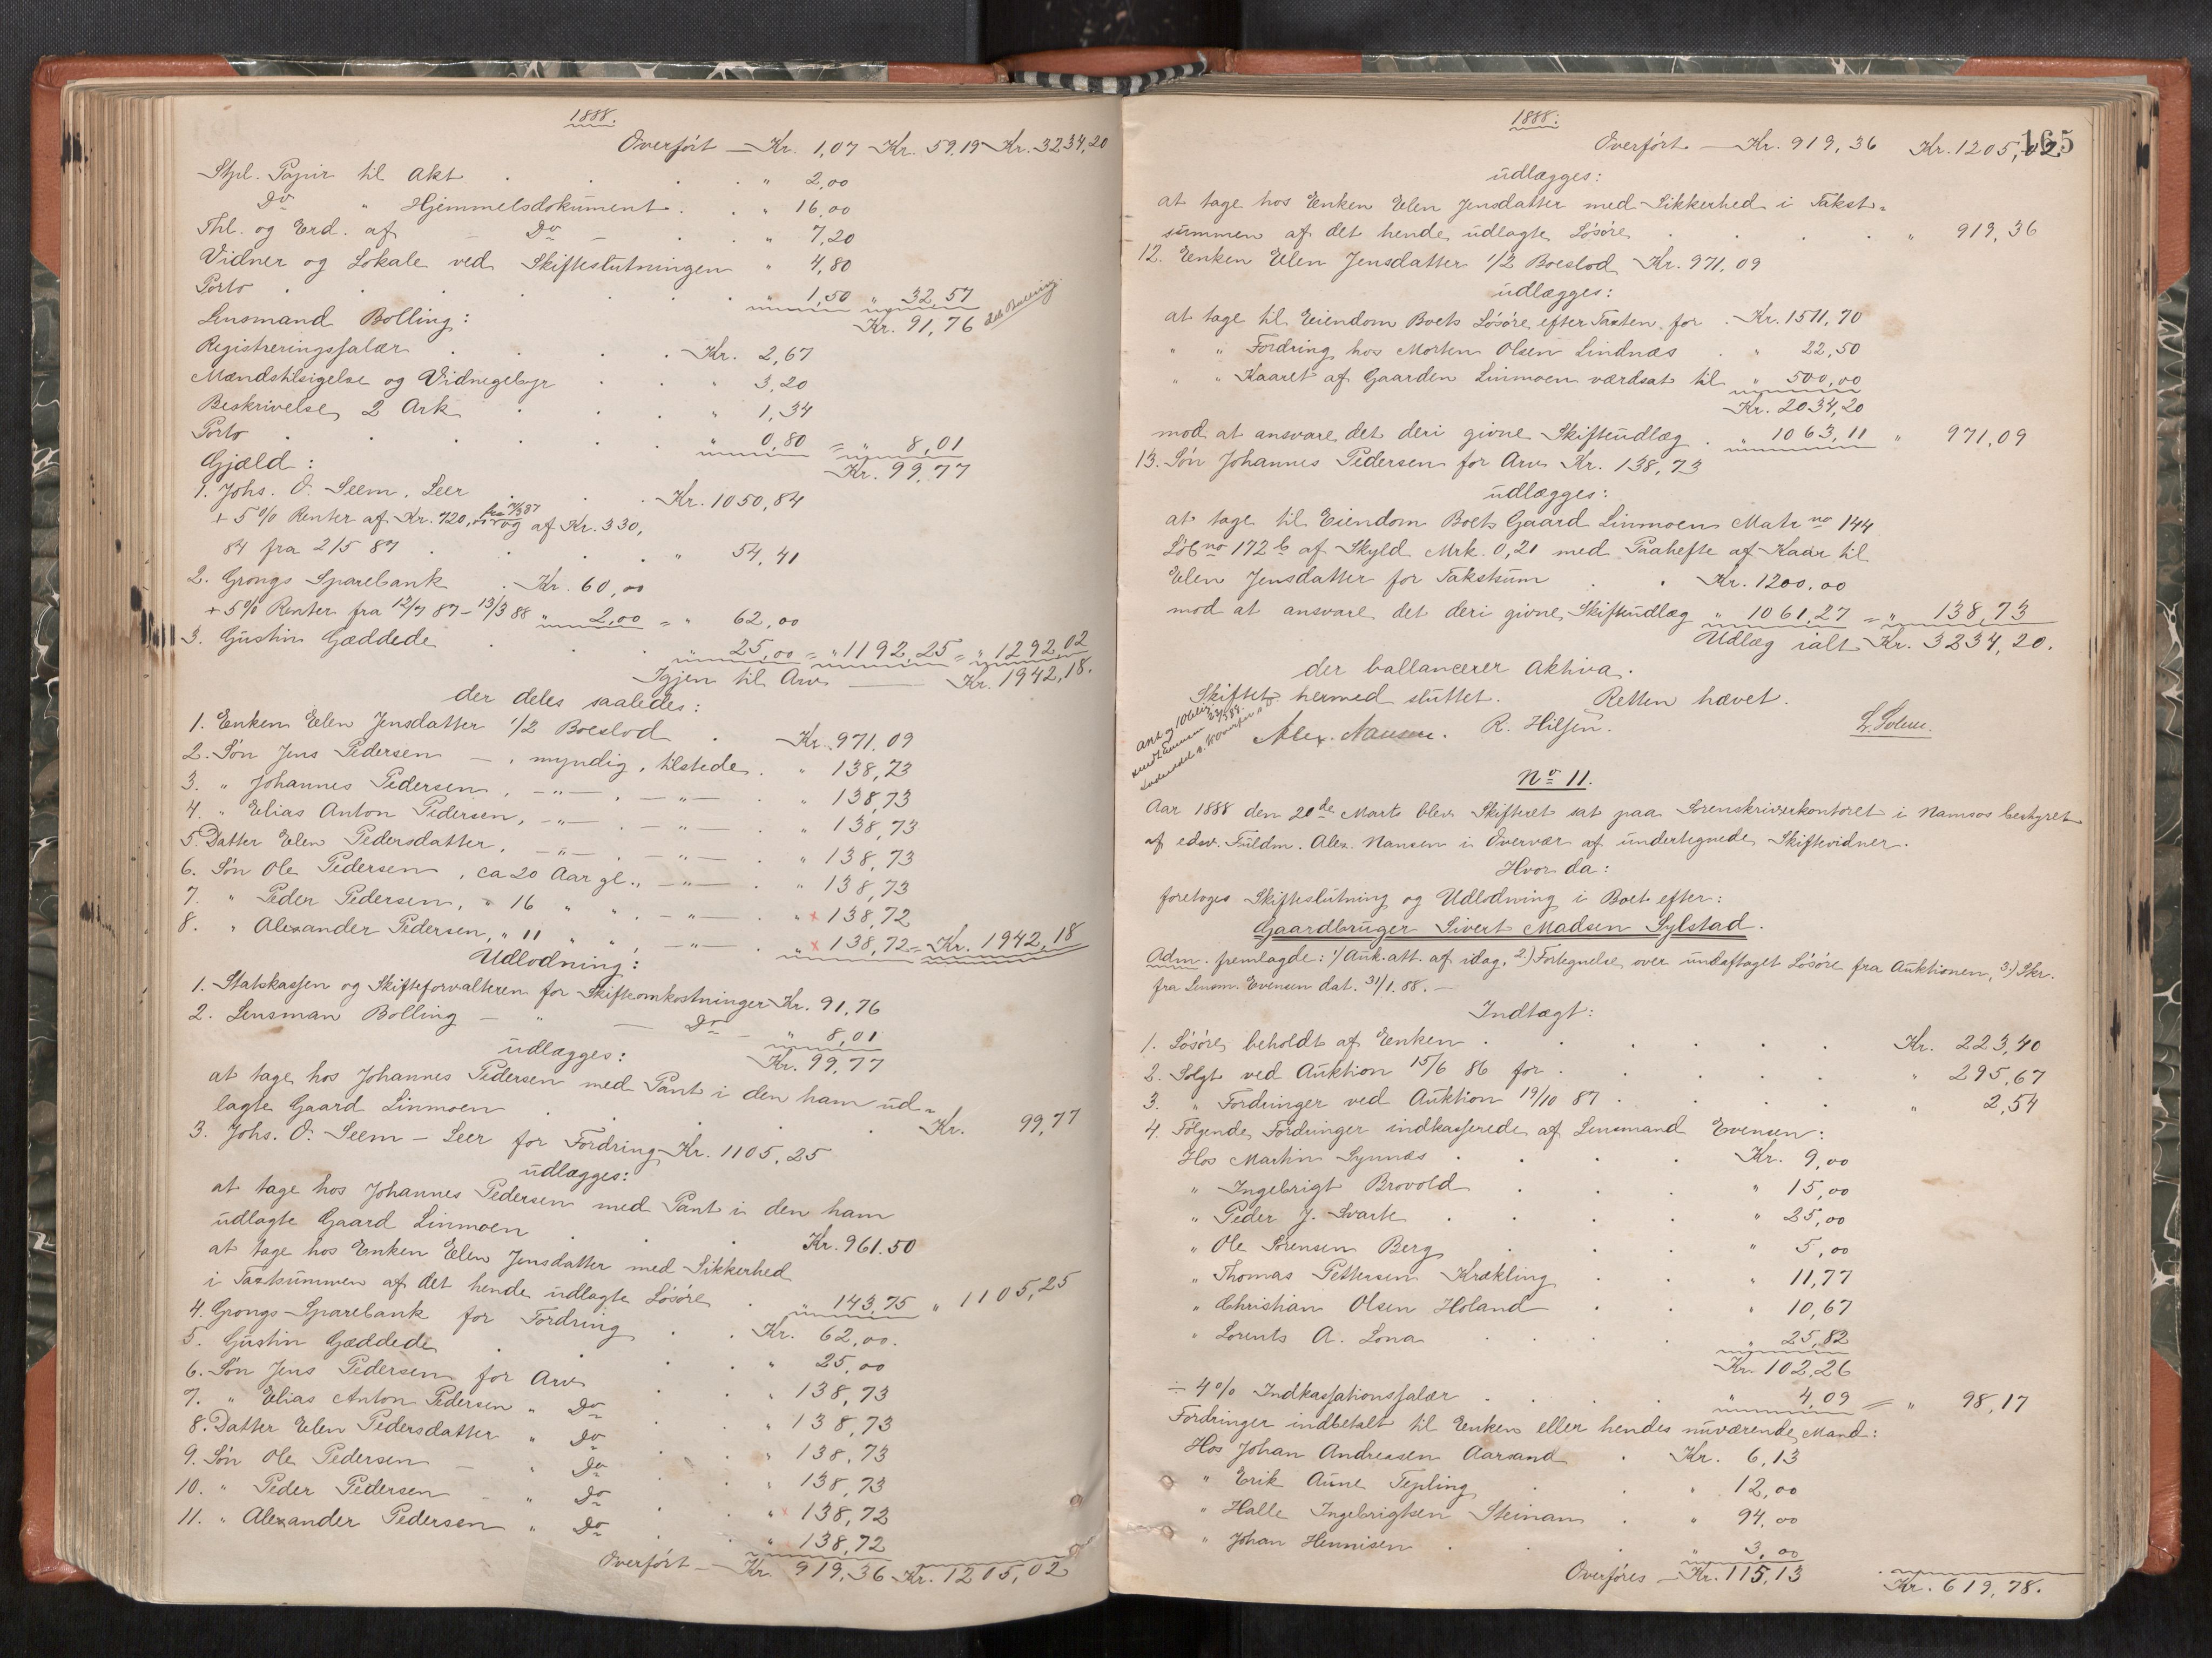 1888.
Overført — Kr. 1,07 Kr. 59,19 Kr. 3234,20
Stpl. Papir til Akt . . . " 2,00
Do " Hjemmelsdokument . . " 16,00
Thl. og Erd. af — Do — . . " 7,20
Vidner og Lokale ved Skifteslutningen " 4,80
Porto . . . . " 1,50 " 32,57
Kr. 91,76
Lensmand Bolling:
Registreringssalær . . . Kr. 2,67
Mændstilsigelse og Vidnegebyr . . " 3,20
Beskrivelse 2 Ark . . . " 1,34
Porto . . . . " 0,80 = " 8,01
Kr. 99,77
Gjæld:
1. Johs. O. Seem, Leer . . Kr. 1050,84
+ 5 % Renter af Kr. 720, og af Kr. 330,
84 fra 2/5 87 . . . " 54,41
2. Grongs Sparebank . Kr. 60,00
+ 5% Renter fra 12/7 87 – 13/3 88 " 2,00 = " 62,00
3. Gustin Gæddede . . . " 25,00 = " 1192,25 = " 1292,02
Igjen til Arv — Kr. 1942,18.
der deles saaledes:
1. Enken Elen Jensdatter 1/2 Boeslod . Kr. 971,09
2. Søn Jens Pedersen —, myndig, tilstede . " 138,73
3. " Johannes Pedersen, —"—, —"— . " 138,73
4. " Elias Anton Pedersen, —"— . —"— . " 138,73
5. Datter Elen Pedersdatter, —"— . —"— . " 138,73
6. Søn Ole Pedersen, ca 20 Aar gl., —"— . " 138,73
7. " Peder Pedersen, " 16 " " . —"— . " 138,72
8. " Alexander Pedersen, " 11 " " , —"— . " 138,72 = Kr. 1942,18
Udlodning:
1. Statskassen og Skifteforvalteren for Skifteomkostninger Kr. 91,76
2. Lensman Bolling — " — Do — " 8,01
Kr. 99,77
udlægges:
at tage hos Johannes Pedersen med Pant i den ham ud-
lagte Gaard Linmoen . . . Kr. 99,77
3. Johs. O. Seem – Leer for Fordring Kr. 1105,25
udlægges:
at tage hos Johannes Pedersen med Pant i den ham
udlagte Gaard Linmoen . . Kr. 961.50
at tage hos Enken Elen Jensdatter med Sikkerhed
i Taxtsummen af det hende udlagte Løsøre . " 143,75 " 1105,25
4. Grongs Sparebank for Fordring . . Kr. 62,00.
5. Gustin Gæddede . . . " 25,00
6. Søn Jens Pedersen for Arv . . " 138,73
7. " Elias Anton Pedersen " Do . " 138,73
8. Datter Elen Pedersdatter " Do . " 138,73
9. Søn Ole Pedersen — " Do . " 138,73
10. " Peder Pedersen — " Do . " 138,72
11. " Alexander Pedersen " Do . " 138,72
Overført — Kr. 919,36 Kr. 1205,02
1888.
165
Overført — Kr. 919,36 Kr. 1205,02
udlægges:
at tage hos Enken Elen Jensdatter med Sikkerhed i Takst-
summen af det hende udlagte Løsøre . . . " 919,36
12. Enken Elen Jensdatter 1/2 Boeslod Kr. 971,09
udlægges:
at tage til Eiendom Boets Løsøre efter Taxten for . Kr. 1511,70
" " Fordring hos Morten Olsen Lindnæs . " 22,50
" " Kaaret af Gaarden Linmoen værdsat til " 500,00
Kr. 2034,20
mod at ansvare det deri givne Skifteudlæg . " 1063,11 " 971,09
13. Søn Johannes Pedersen for Arv Kr. 138,73
udlægges:
at tage til Eiendom Boets Gaard Linmoen Matr no 144
Løb no 172 b af Skyld Mrk. 0,21 med Paahefte af Kaar til
Elen Jensdatter for Takstsum . . Kr. 1200,00
mod at ansvare det deri givne Skifteudlæg " 1061,27 = " 138,73
Udlæg ialt Kr. 3234,20.
der ballancerer Aktiva.
Skiftet hermed sluttet. Retten hævet.
Alex. Nansen. R. Hilsen. L. Solem.
No 11.
Aar 1888 den 20de Marts blev Skifteret sat paa Sorenskriverkontoret i Namsos bestyret
af edsv. Fuldm. Alex. Nansen i Overvær af undertegnede Skiftevidner.
Hvor da:
foretoges Skifteslutning og Udlodning i Boet efter:
Gaardbruger Sivert Madsen Sylstad.
Adm. fremlagde: 1) Auk. att. af idag, 2) Fortegnelse over undaftaget Løsøre fra Auktionen, 3) Skr.
fra Lensm. Evensen dat. 31/1. 88. —
Indtægt:
1. Løsøre beholdt af Enken . . . . Kr. 223,40
2. Solgt ved Auktion 15/6 86 for . . . . " 295,67
3. " Fordringer ved Auktion 19/10 87 . . . " 2,54
4. Følgende Fordringer indkasserede af Lensmand Evensen:
Hos Martin Synnæs . . . Kr. 9,00
" Ingebrigt Brovold . . . " 15,00
" Peder J. Svarte . . . " 25,00
" Ole Sørensen Berg . . . " 5,00
" Thomas Pettersen Krækling . . " 11,77
" Christian Olsen Høland . . " 10,67
" Lorents A. Lona . . . " 25,82
Kr. 102,26
÷ 4 % Indkassationssalær . . . " 4,09 = " 98,17
Fordringer indbetalt til Enken eller hendes nuværende Mand:
Hos Johan Andreasen Aarsand . Kr. 6,13
" Erik Aune Tepling . . " 12,00
" Halle Ingebrigtsen Steinan . " 94,00
" Johan Hennisen . . " 3,00
Overføres — Kr. 115,13 Kr. 619,78.